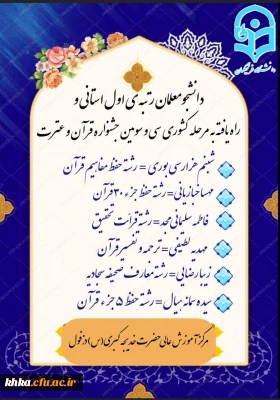 دانشگاه فرهنگیان
دانشجو معلمان رتبه ی اول استانی و
راه یافته به مرحله کشوری سی و سومین جشنواره قرآن و عترت
شبنم هزارسی بوری = رشته حفظ مفاهیم قرآن
مهسا خبازبانی = رشته حفظ جزء ۳۰ قرآن
فاطمه سلیمانی مجد = رشته قرائت تحقیق
مهدیه لطیفی = ترجمه و تفسیر قرآن
زیبا رضایی = رشته معارف صحیفه سجادیه
سیده سمانه نبیال = رشته حفظ ۵ جزء قرآن
مرکز آموزش عالی حضرت خدیجه کبری (س) دزفول
khka.cfu.ac.ir